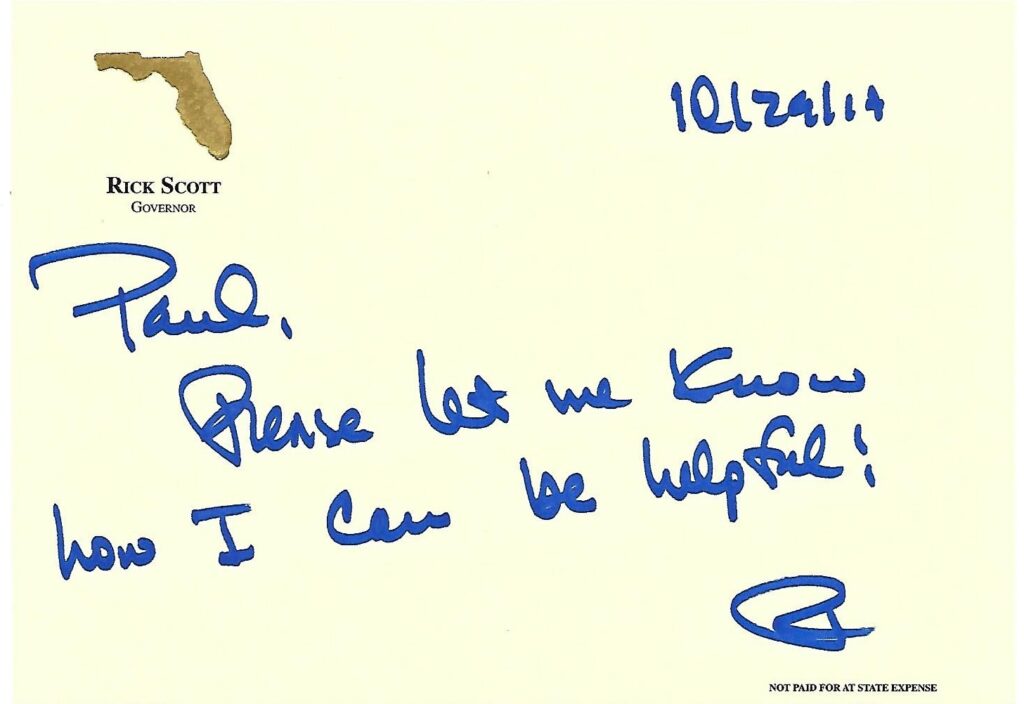 10/29/14
RICK SCOTT
GOVERNOR
Paul,
Please let me know
how I can be helpful!
R
NOT PAID FOR AT STATE EXPENSE